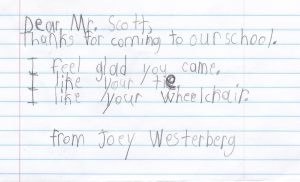 Dear, Mr. Scott,
thanks for comming to our school.
I feel glad you came.
I like your tie
I like your wheelchair.
from Joey Westerberg